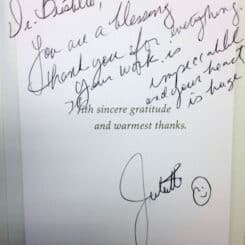 Dr.
You are a blessing
Thank you for everything.
Your work is impeccable
and your heart
is huge
With sincere gratitude
and warmest thanks.